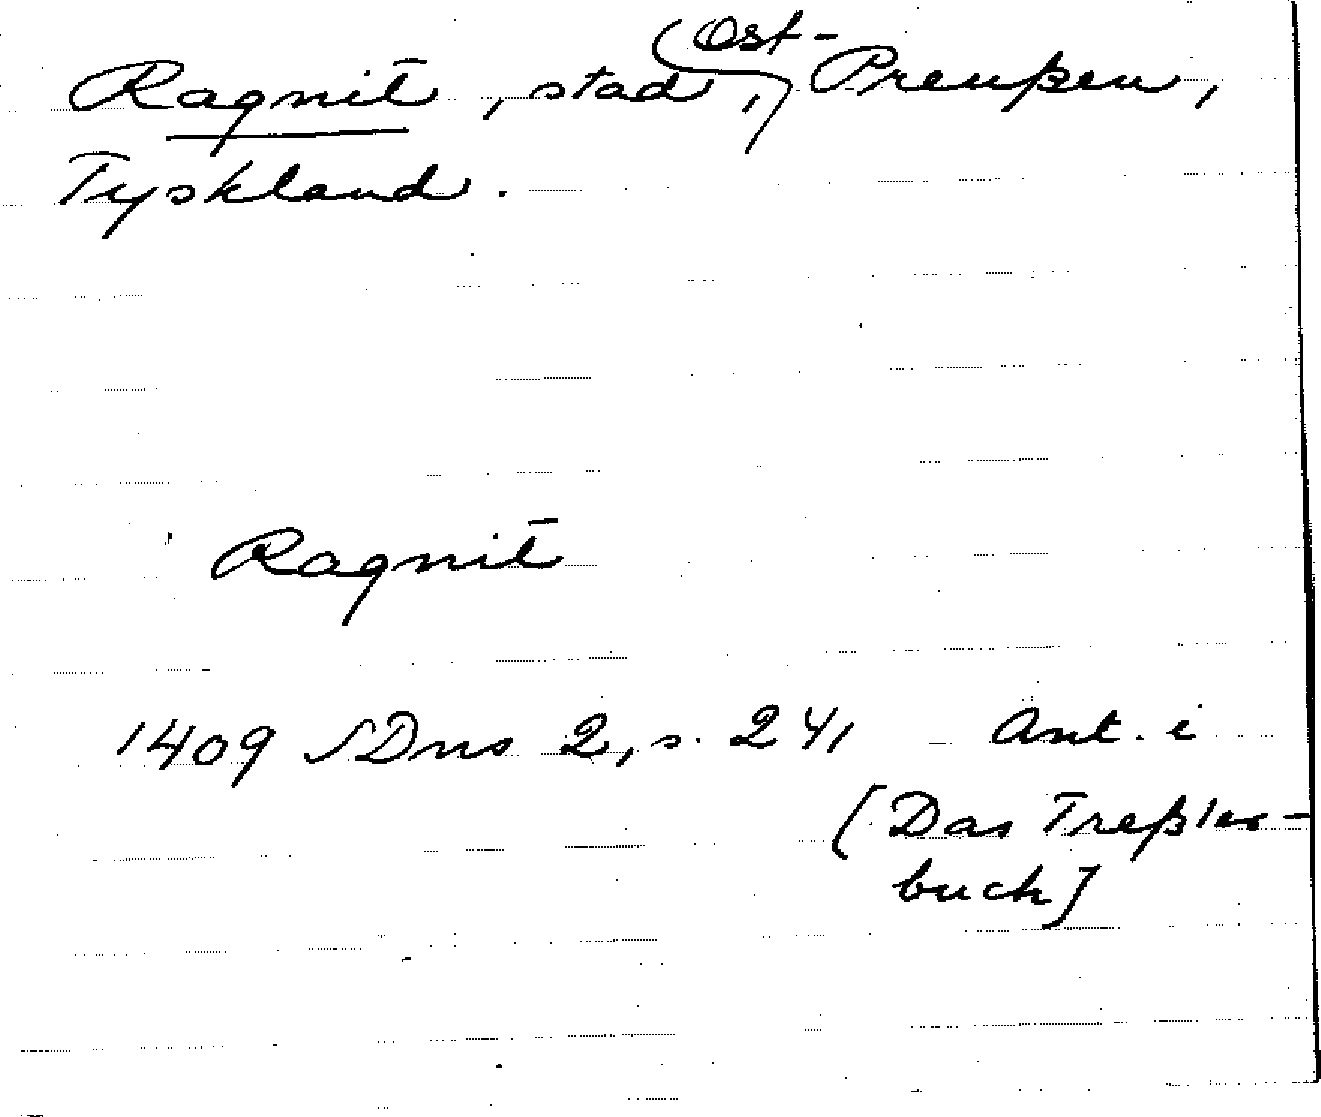 Ragnit, stad, Ost-Preußen,
Tyskland.
Ragnit
1409 SDns 2, s. 241 Ant. i
[Das Treßler-
buch]